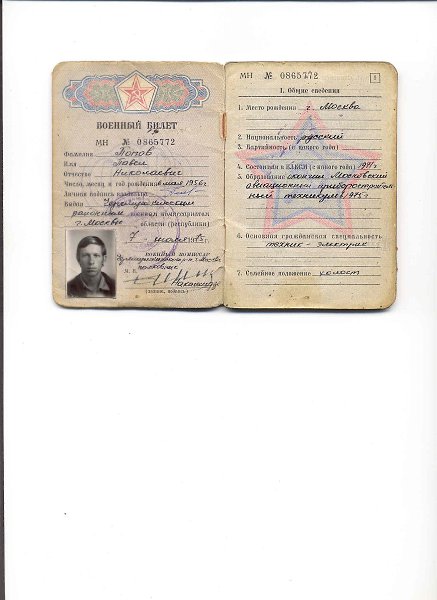 ВОЕННЫЙ БИЛЕТ
МН № 0865772
Фамилия Попов
Имя Павел
Отчество Николаевич
Число, месяц и год рождения мая 1956 г
Личная подпись владельца
Выдан Черемушкинским
районным военным комиссариатом
г. Москвы области (республики)
7 июля 1975 г.
ВОЕННЫЙ КОМИССАР
М. П.
(звание, подпись)
МН № 0865772
1
I. Общие сведения
1. Место рождения г. Москва
2. Национальность русский
3. Партийность (с какого года)
4. Состоял ли в ВЛКСМ (с какого года)
5. Образование окончил Московский
авиационный приборостроитель-
ный техникум 1975 г.
6. Основная гражданская специальность
техник-электрик
7. Семейное положение холост